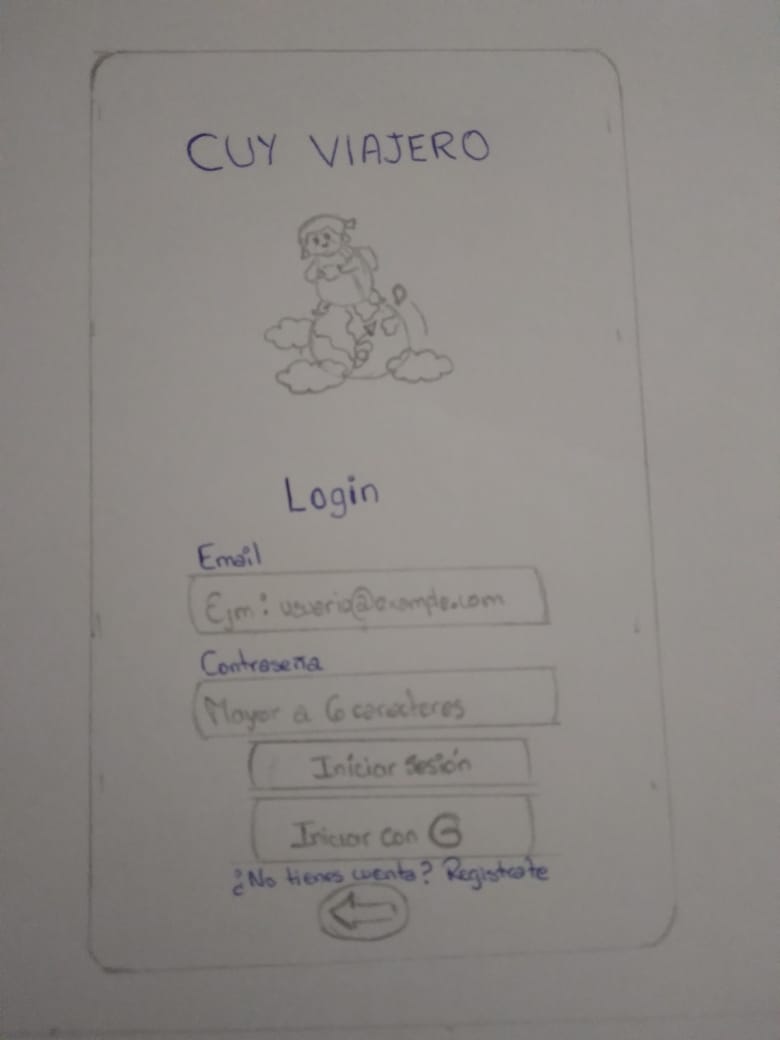 CUY VIAJERO
Login
Email
Ejm: usuario@example.com
Contraseña
Mayor a 6 caracteres
Iniciar sesión
Iniciar con G
¿No tienes cuenta? Registrate